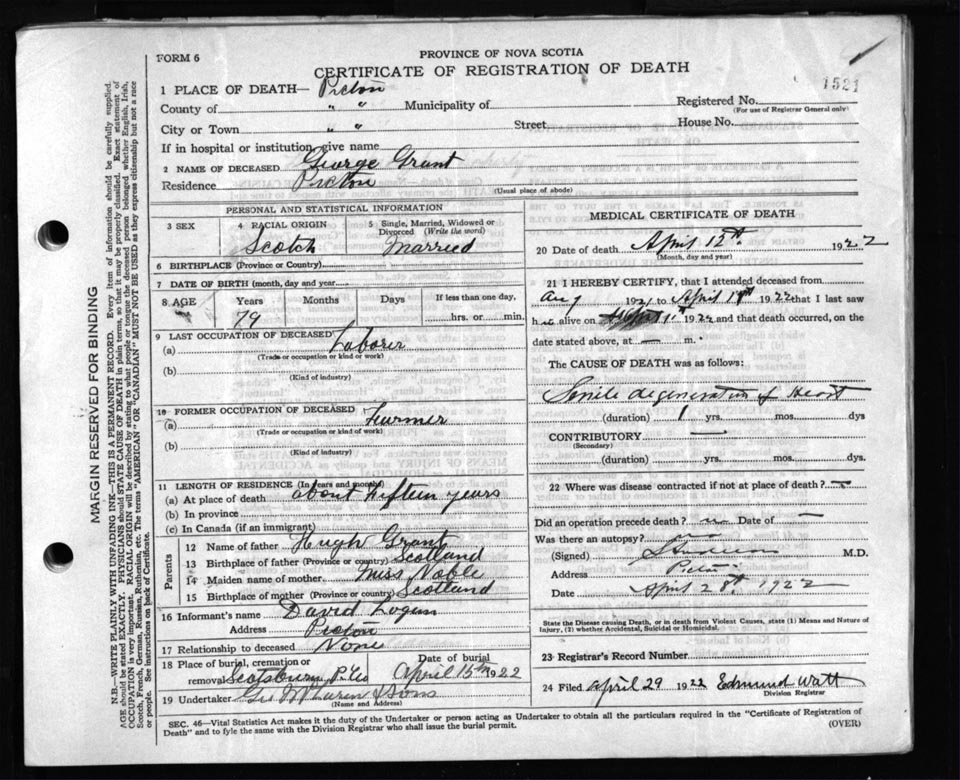 FORM 6
PROVINCE OF NOVA SCOTIA
CERTIFICATE OF REGISTRATION OF DEATH
1521
1 PLACE OF DEATH— Pictou
County of " " Municipality of Registered No.
(For use of Registrar General only)
City or Town " " Street House No.
If in hospital or institution, give name
2 NAME OF DECEASED George Grant
Residence Pictou
(Usual place of abode)
PERSONAL AND STATISTICAL INFORMATION
3 SEX
4 RACIAL ORIGIN
Scotch
5 Single, Married, Widowed or Divorced (Write the word)
Married
6 BIRTHPLACE (Province or Country)
7 DATE OF BIRTH (month, day and year)
8 AGE Years Months Days If less than one day,
79 hrs. or min.
9 LAST OCCUPATION OF DECEASED
(a) Laborer
(Trade or occupation or kind of work)
(b)
(Kind of industry)
10 FORMER OCCUPATION OF DECEASED
(a) Farmer
(Trade or occupation or kind of work)
(b)
(Kind of industry)
11 LENGTH OF RESIDENCE (In years and months)
(a) At place of death about fifteen years
(b) In province
(c) In Canada (if an immigrant)
Parents
12 Name of father Hugh Grant
13 Birthplace of father (Province or country) Scotland
14 Maiden name of mother Miss Noble
15 Birthplace of mother (Province or country) Scotland
16 Informant's name David Logan
Address Pictou
17 Relationship to deceased None
18 Place of burial, cremation or removal Scotsburn
Date of burial
April 15th 1922
19 Undertaker & Sons
(Name and Address)
MEDICAL CERTIFICATE OF DEATH
20 Date of death April 12th 1922
(Month, day and year)
21 I HEREBY CERTIFY, that I attended deceased from
Aug 1921 to April 1922 that I last saw
h alive on 1922 and that death occurred, on the
date stated above, at — m.
The CAUSE OF DEATH was as follows:
Senile degeneration of Heart
(duration) 1 yrs. mos. dys
CONTRIBUTORY —
(Secondary)
(duration) yrs. mos. dys.
22 Where was disease contracted if not at place of death? —
Did an operation precede death? Date of —
Was there an autopsy? no
(Signed) M.D.
Address Pictou
Date April 28th 1922
State the Disease causing Death, or in death from Violent Causes, state (1) Means and Nature of Injury, (2) whether Accidental, Suicidal or Homicidal.
23 Registrar's Record Number
24 Filed April 29 1922 Edmund Watt
Division Registrar
SEC. 46—Vital Statistics Act makes it the duty of the Undertaker or person acting as Undertaker to obtain all the particulars required in the "Certificate of Registration of
Death" and to fyle the same with the Division Registrar who shall issue the burial permit.
(OVER)
MARGIN RESERVED FOR BINDING
N.B.—WRITE PLAINLY WITH UNFADING INK—THIS IS A PERMANENT RECORD. Every item of information should be carefully supplied.
AGE should be stated EXACTLY. PHYSICIANS should STATE CAUSE OF DEATH in plain terms, so that it may be properly classified. Exact statement of
OCCUPATION is very important. RACIAL ORIGIN will be described by stating to what people or tongue the deceased person belonged whether English, Irish,
Scotch, French, German, Russian, Ruthenian, etc. The terms "AMERICAN" or "CANADIAN" MUST NOT BE USED as they express citizenship but not a race
or people. See instructions on back of Certificate.